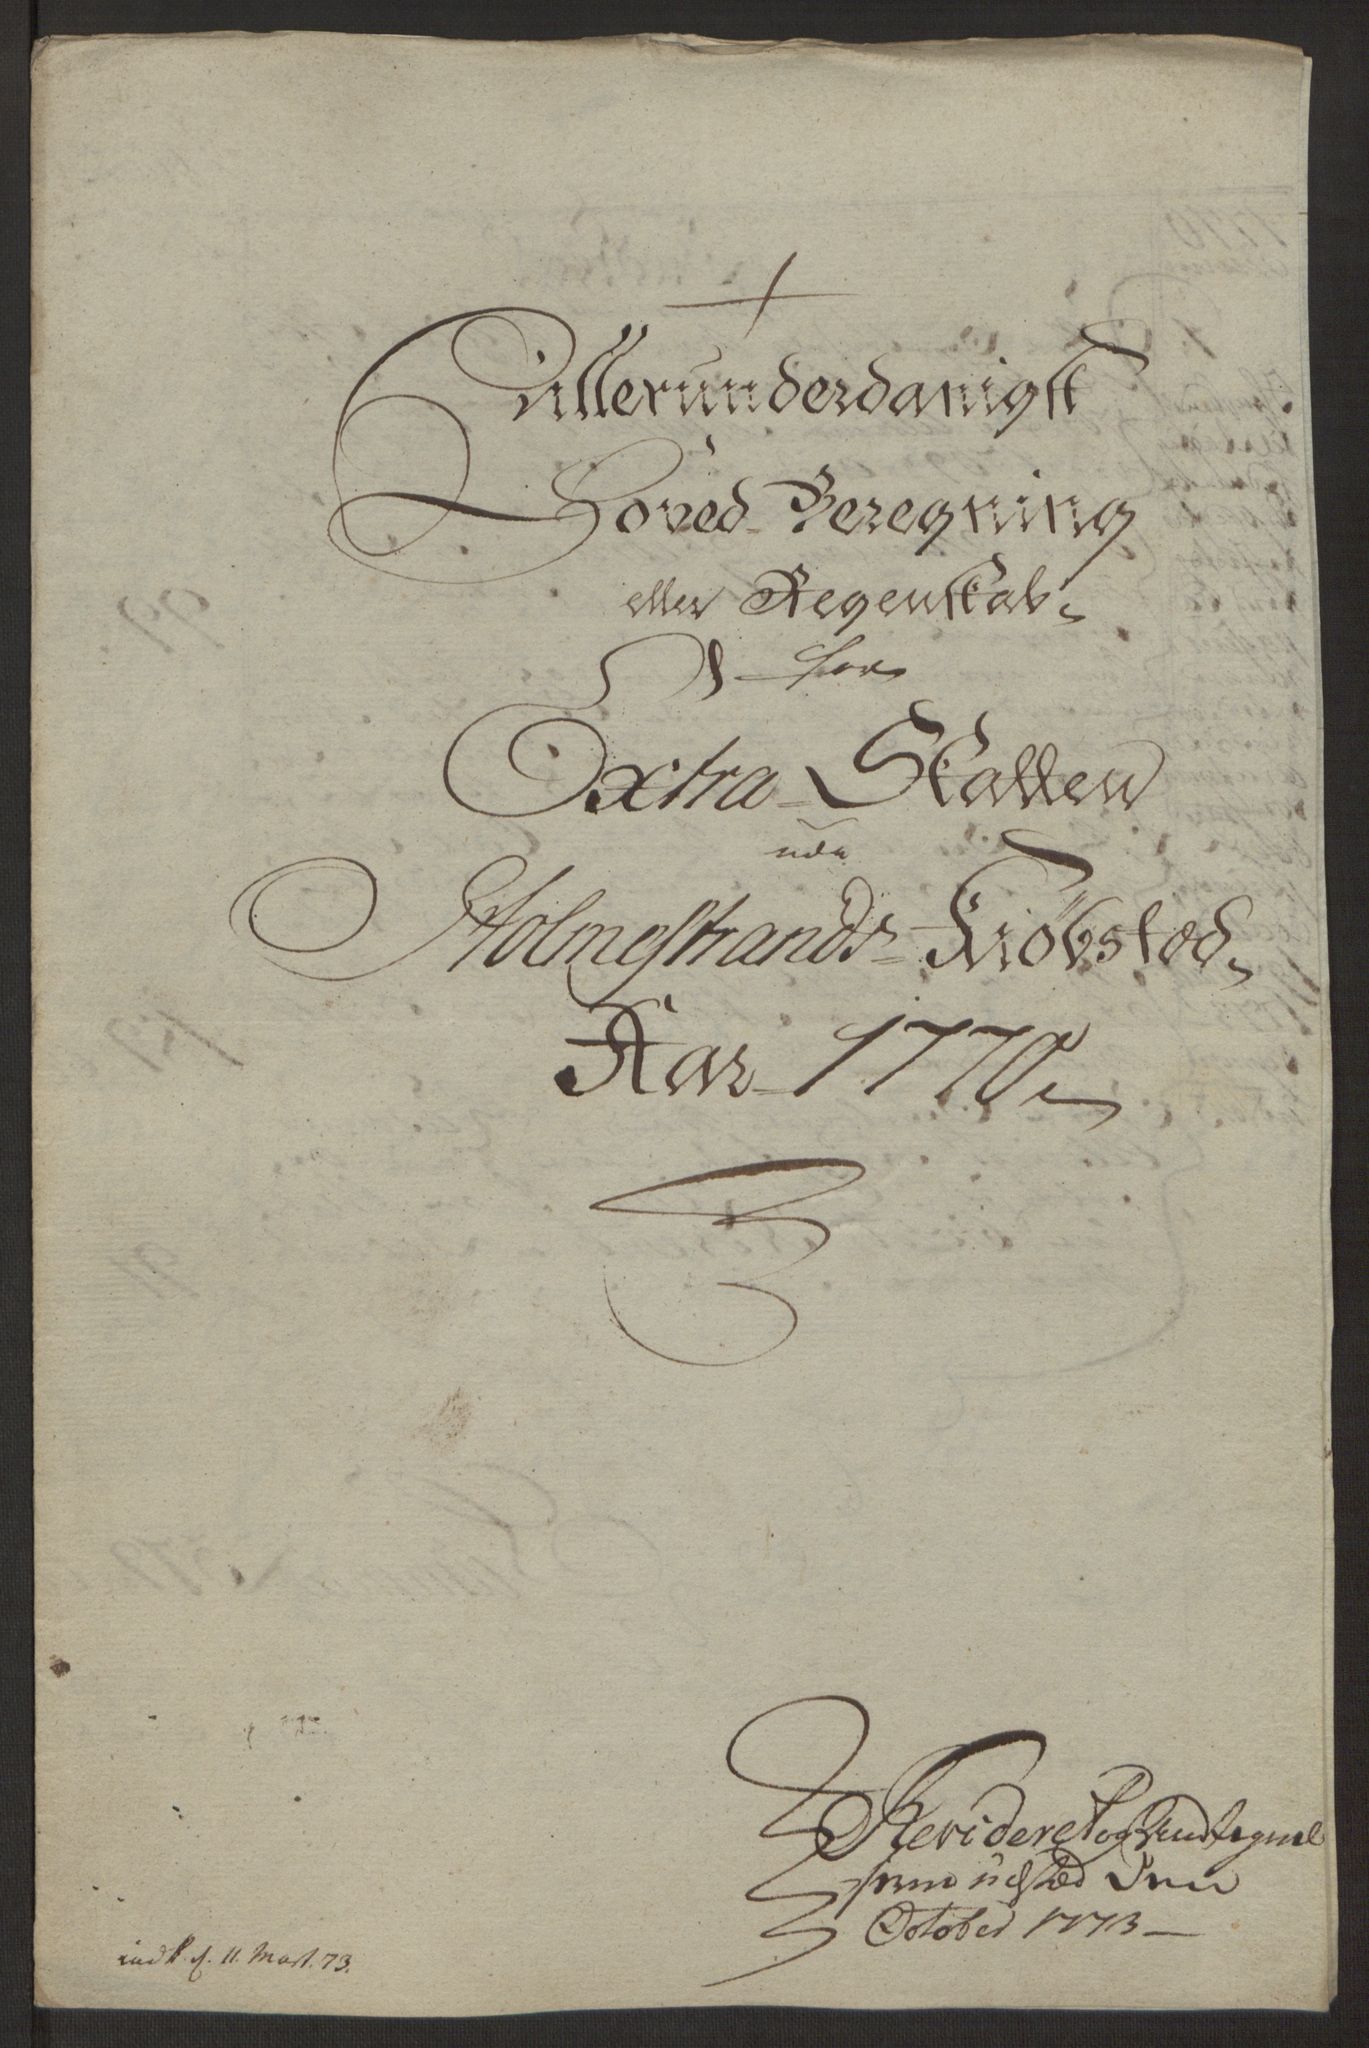 Allerunderdanigst
Hoved Beregning
eller Regenskab
for
Extra Skatten
udi
Holmestrands Kiöbstæd
Aar 1770
Revideret og Antegnelserne udsted den
October 1773
indk. d. 11. Mart. 73.